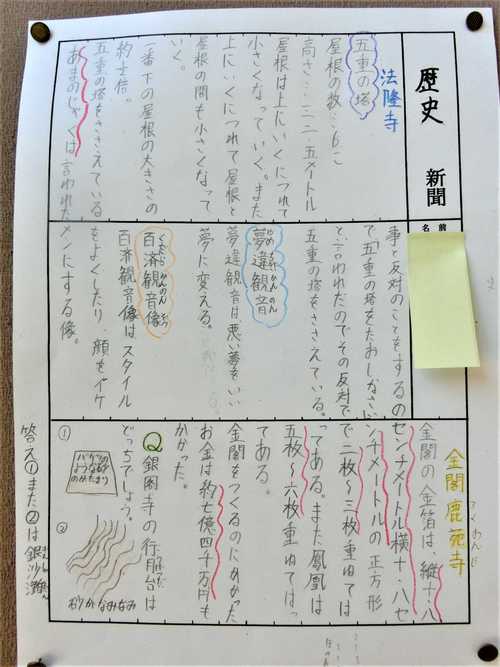 歴史新聞
名前
法隆寺
五重の塔
屋根の数…6こ
高さ…三二.五メートル
屋根は上にいくにつれて
小さくなっていく。また
上にいくにつれて屋根と
屋根の間も小さくなって
いく。
一番下の屋根の大きさの
五重の塔をささえている
あまのじゃくは言われた
事と反対のことをするの
で「五重の塔をたおしなさい」
と言われたのでその反対で
五重の塔をささえている。
夢違観音
夢違観音は悪い夢をいい
夢に変える。
百済観音像
百済観音像はスタイル
をよくしたり、顔をイケ
メンにする像。
金閣鹿苑寺
ろくおんじ
金閣の金箔は、縦十・八
センチメートル横十・八セ
ンチメートルの正方形
で二枚～三枚重ねては
ってある。また鳳凰は
五枚～六枚重ねてはっ
てある。
金閣をつくるのにかかった
お金は約七億四千万円も
かかった。
Q銀閣寺の行月台は
どっちでしょう。
①
バケツの
ような砂
のかたまり
②
砂がなみなみ
答え①また②は銀沙灘